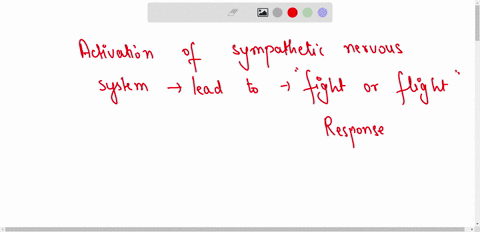 Activation of sympathetic nervous
system → lead to → "fight or flight"
Response